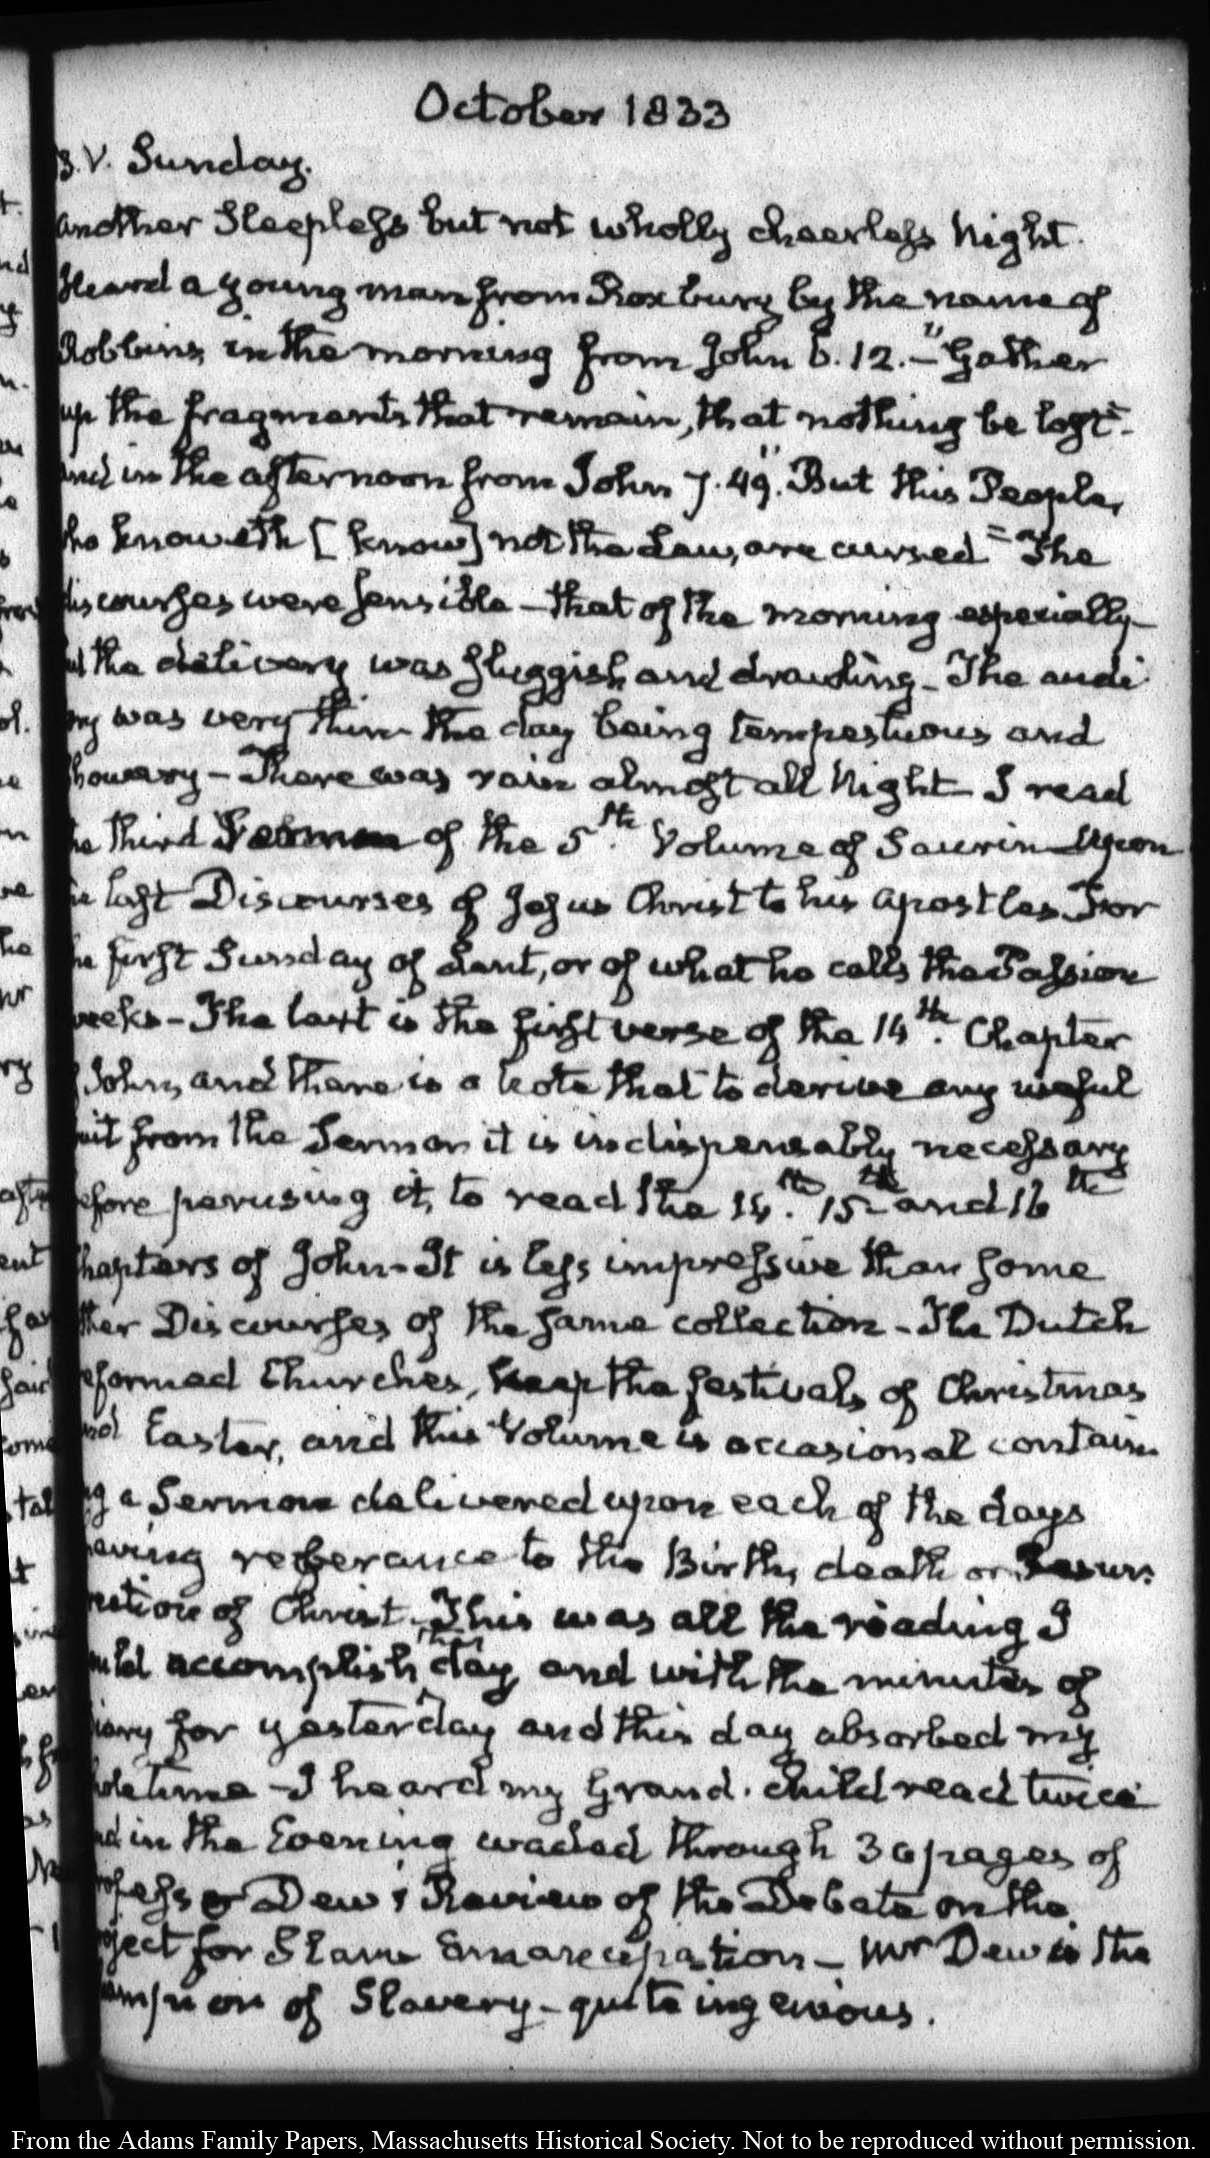 October 1833
3. V. Sunday.
Another Sleepless but not wholly cheerless Night.
Heard a young man from Roxbury by the name of
Robbins, in the morning from John 6. 12. – "Gather
up the fragments that remain, that nothing be lost" –
and in the afternoon from John 7. 49. "But this People,
who knoweth [know] not the Law, are cursed" The
discourses were sensible – that of the morning especially –
but the delivery was sluggish and drawling – The audi
ory was very thin the day being tempestuous and
showery – There was rain almost all Night – I read
the third Sermon of the 5th. Volume of Saurin Upon
the last Discourses of Jesus Christ to his apostles. For
the first Sunday of Lent, or of what he calls the Passion
weeks – The text is the first verse of the 14th. Chapter
of John, and there is a Note that to derive any useful
fruit from the Sermon it is indispensably necessary
before perusing it, to read the 14th. 15th and 16th
Chapters of John – It is less impressive than some
other Discourses of the same collection – The Dutch
reformed Churches, keep the festivals of Christmas
and Easter, and this Volume is occasional contain
ing a Sermon delivered upon each of the days
having reference to the Birth, death or Resur
rection of Christ. This was all the reading I
could accomplish this day, and with the minutes of
diary for yesterday and this day absorbed my
whole time – I heard my Grand-child read twice
and in the Evening waded through 30 pages of
Professor Dew's Review of the Debate on the
project for Slave Emancipation – Mr Dew is the
Champion of Slavery – quite ingenious.
From the Adams Family Papers, Massachusetts Historical Society. Not to be reproduced without permission.